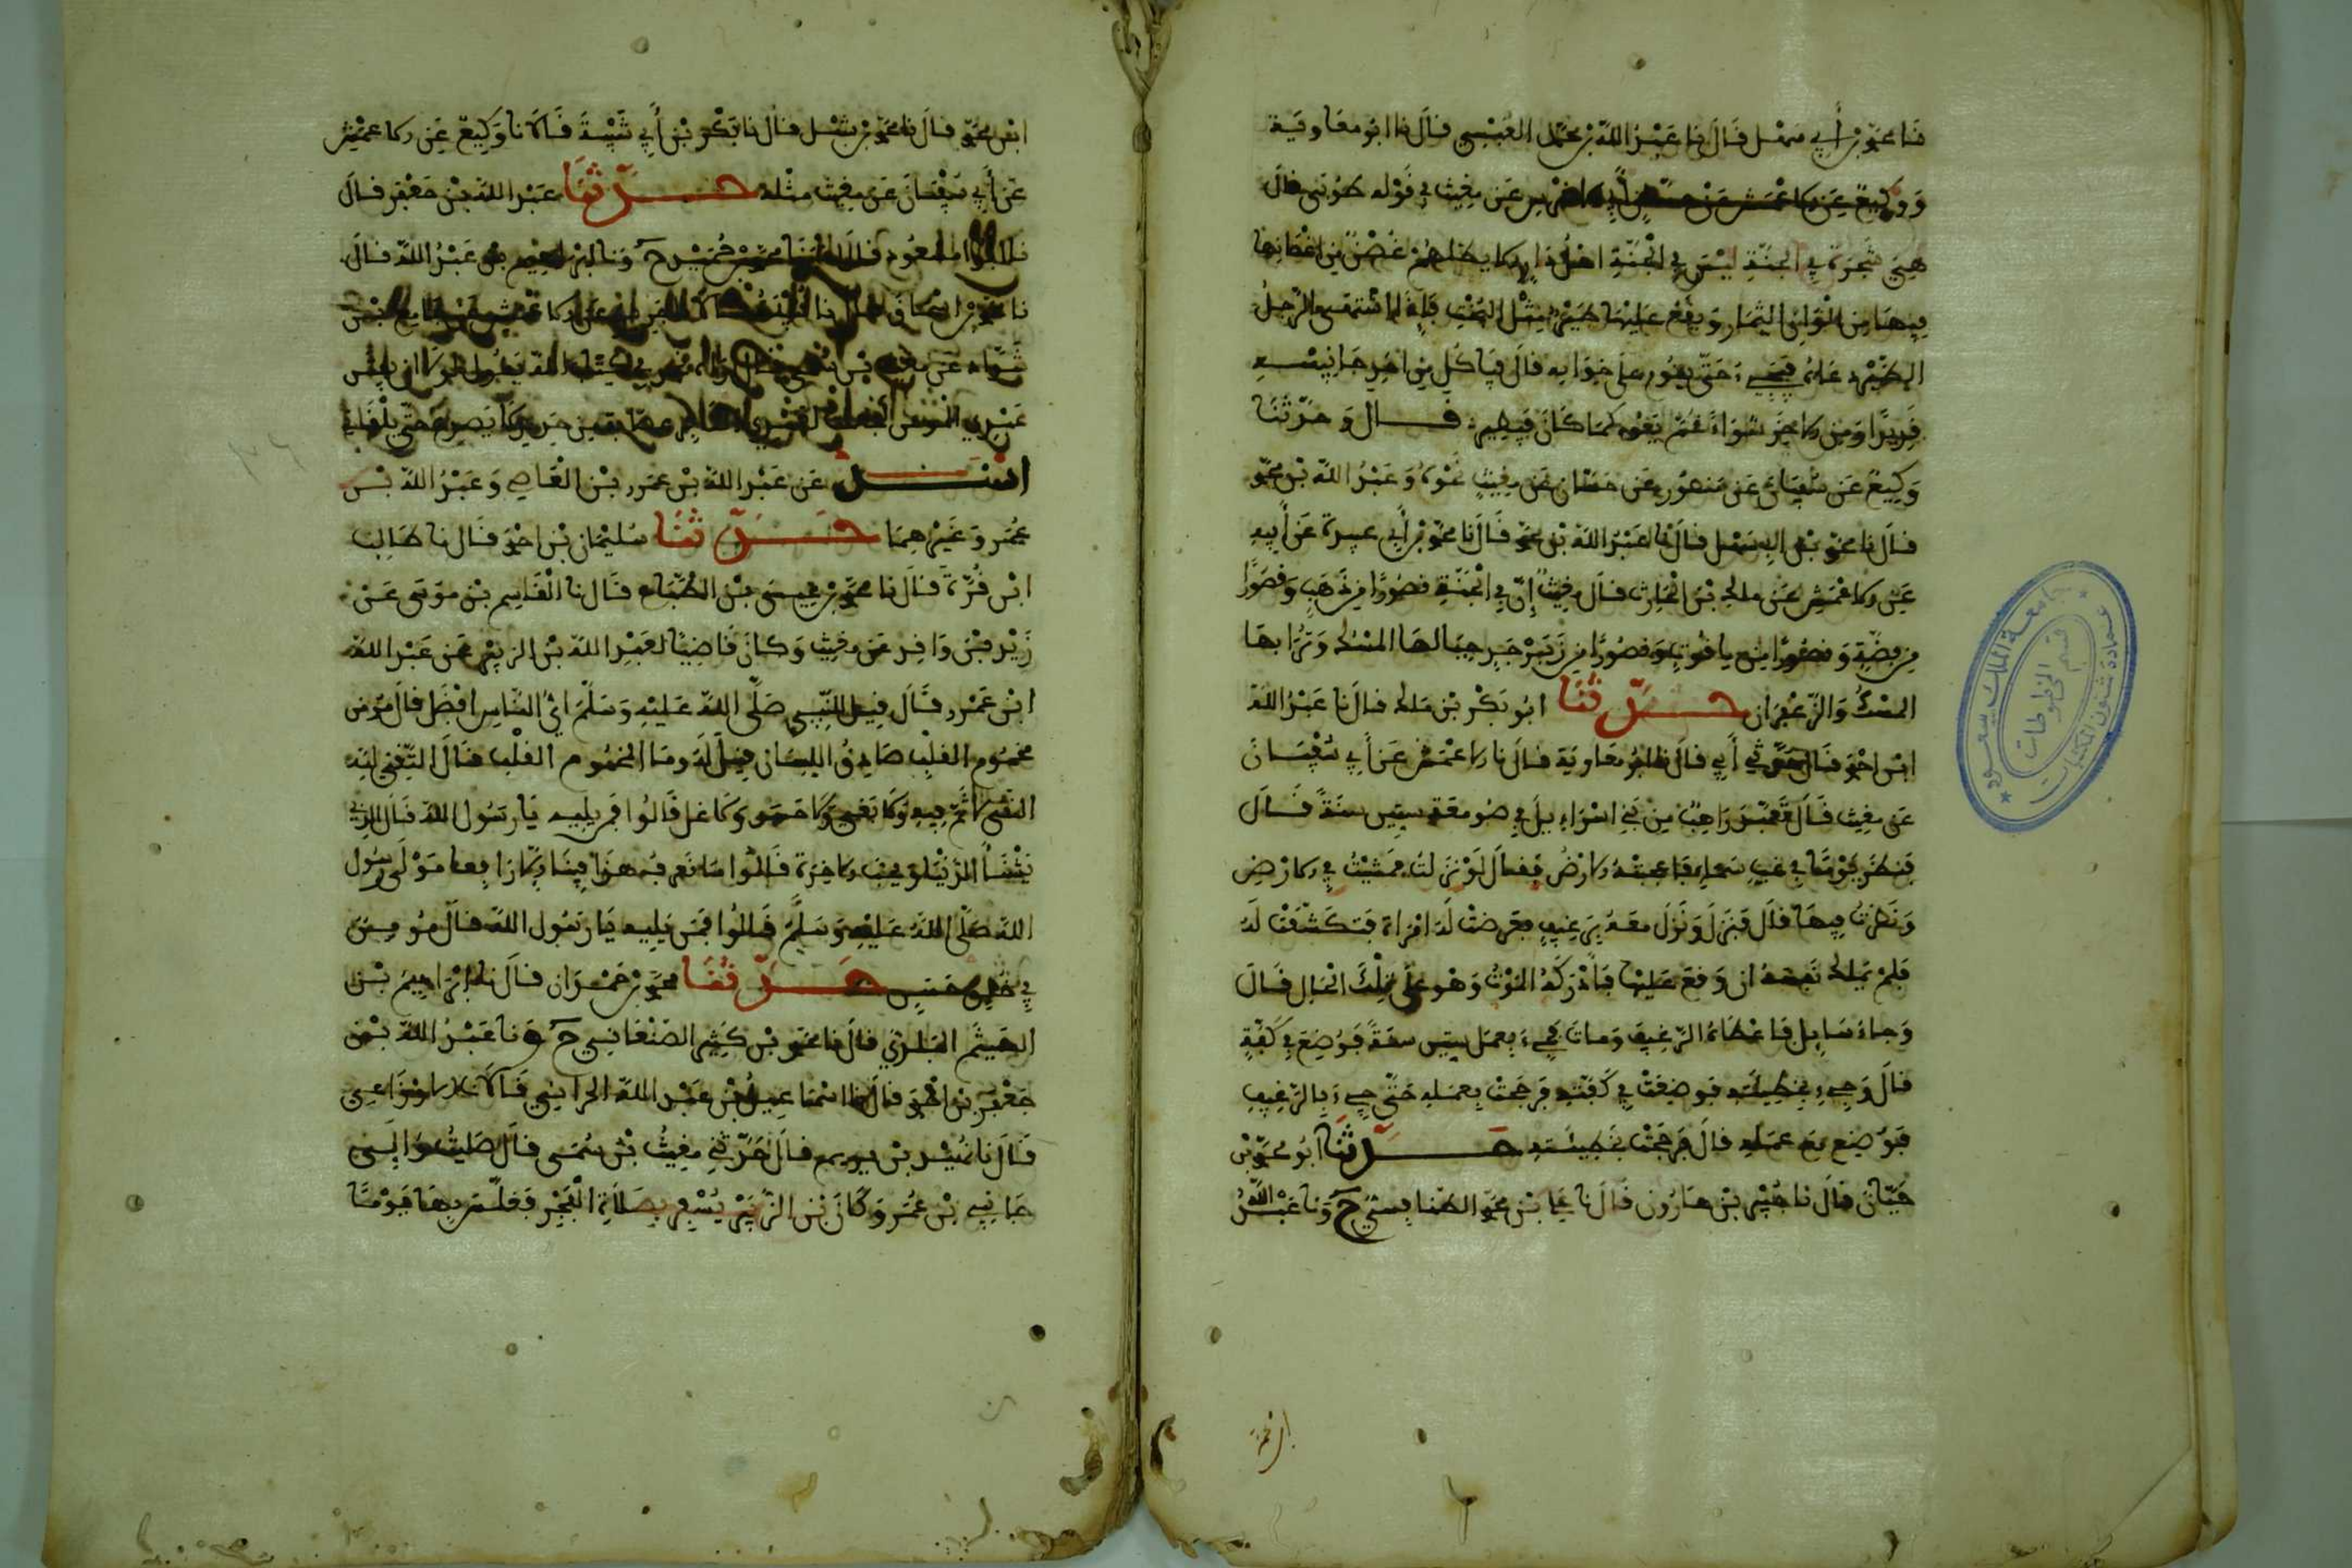 نا محمد بن أبي سهل قال نا عبد الله بن محمد العبسي قال نا ابو معاوية
ووكيع عن الاعمش عن عن مغيث في قوله طوبى قال
هي شجرة في الجنة ليس في الجنة اهل دار الا يظلهم غصن من اغصانها
فيها من الوان الثمار ويقع عليها طير مثل البخت فاذا اشتهى الرجل
الطير دعاه فيجيء حتى يقع على خوانه قال فياكل من احد جانبيه
قديدا ومن الاخر شواء ثم يعود كما كان فيطير قال وحدثنا
وكيع عن سفيان عن منصور عن حسان عن مغيث نحوه وعبد الله بن محمد
قال نا محمد بن ابي سهل قال نا عبد الله بن محمد قال نا محمد بن أبي عبيدة عن أبيه
عن الاعمش عن ملك بن الحارث قال مغيث إن في الجنة قصورا من ذهب وقصورا
من فضة وقصورا من ياقوت وقصورا من زبرجد جبالها المسك وترابها
المسك والزعفران حدثنا ابو بكر بن ملك قال نا عبد الله
ابن احمد قال حدثني أبي قال نا ابو معاوية قال نا الاعمش عن أبي سفيان
عن مغيث قال تعبد راهب من بني اسراءيل في صومعة ستين سنة قال
فنظر يوما في غب سماء فاعجبته الارض فقال لو نزلت فمشيت في الارض
ونظرت فيها قال فنزل ونزل معه برغيف فعرضت له امراة فتكشفت له
فلم يملك نفسه ان وقع عليها فادركه الموت وهو على تلك الحال قال
وجاء سايل فاعطاه الرغيف ومات فجيء بعمل ستين سنة فوضع في كفة
قال وجيء بخطيئته فوضعت في كفة فرجحت بعمله حتى جيء بالرغيف
فوضع مع عمله قال فرجحت بخطيئته حدثنا ابو محمد بن
حيان قال نا جبير بن هارون قال نا علي بن محمد الطنافسي ح ونا عبد الله
ابن محمد قال نا محمد بن شبل قال نا ابو بكر بن أبي شيبة قالا نا وكيع عن الاعمش
عن أبي سفيان عن مغيث مثله حدثنا عبد الله بن جعفر قال
نا ابو مسعود قال ح ونا ابراهيم بن عبد الله قال
نا محمد بن اسحاق قال نا قتيبة عن الاعمش عن جامع بن
شداد عن مغيث بن سمي قال
عبدي المؤمن حتى يلقاني
اسند عن عبد الله بن عمرو بن العاص وعبد الله بن
عمر وغيرهما حدثنا سليمان بن احمد قال نا طالب
ابن قرة قال نا محمد بن عيسى بن الطباع قال نا القاسم بن موسى عن
زيد بن واقد عن مغيث وكان قاضيا لعبد الله بن الزبير عن عبد الله
ابن عمرو قال قيل للنبي صلى الله عليه وسلم اي الناس افضل قال مؤمن
مخموم القلب صادق اللسان قيل له وما المخموم القلب قال التقي لله
النقي لا اثم فيه ولا بغي ولا حسد ولا غل قالوا فمن يليه يا رسول الله قال الذي
يشنأ الدنيا ويحب الاخرة قالوا ما نعرف هذا فينا الا رافعا مولى رسول
الله صلى الله عليه وسلم قالوا فمن يليه يا رسول الله قال مومن
في خلق حسن حدثنا محمد بن معمر ان قال نا إبراهيم بن
الهيثم البلدي قال نا محمد بن كثير الصنعاني ح ونا عبد الله بن
جعفر بن احمد قال نا اسماعيل بن عبد الله قالا نا الاوزاعي
قال نا نهيك بن يريم قال حدثني مغيث بن سمي قال صليت الى
جانب بن عمر وكان بن الزبير يسفر بصلاة الفجر فغلس بها يوما
جامعة الملك سعود
عمادة شئون المكتبات
قسم المخطوطات